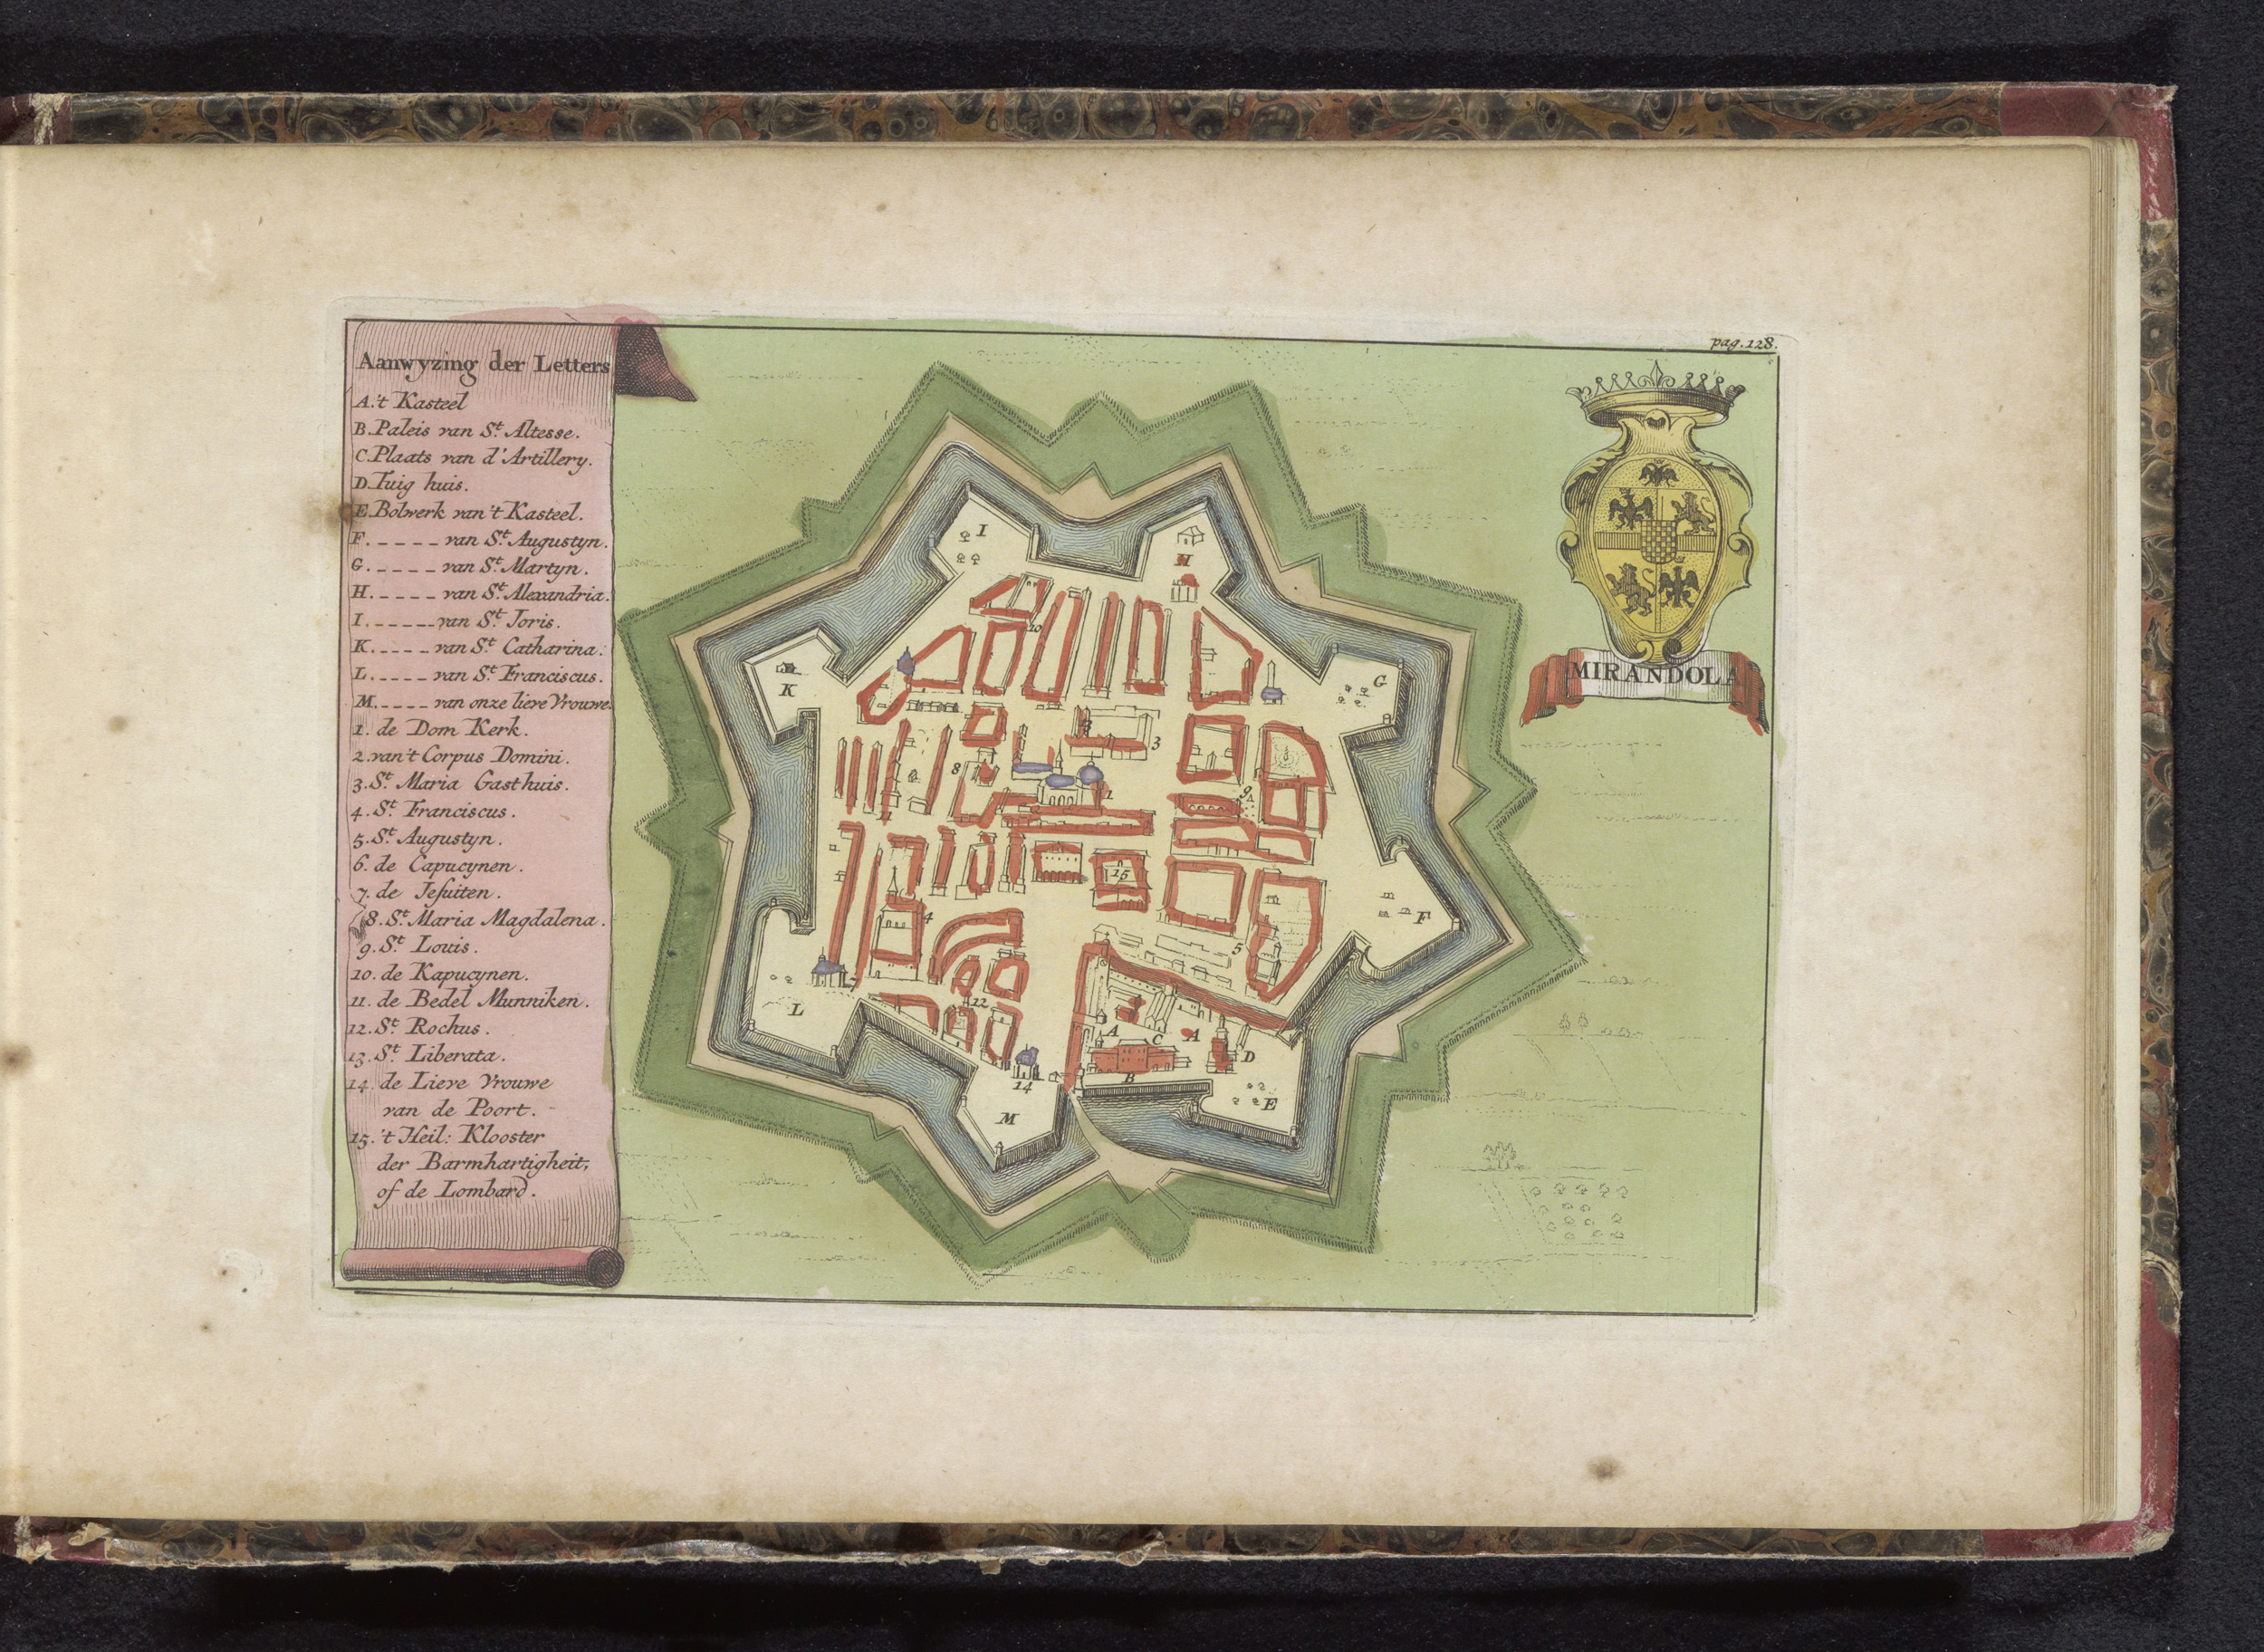 pag. 128.
Aanwyzing der Letters
A. 't Kasteel
B. Paleis van St. Altesse.
C. Plaats van d' Artillery.
D. Tuig huis.
E. Bolwerk van 't Kasteel.
F. _ _ _ _ _ van St. Augustyn.
G. _ _ _ _ _ van St. Martyn.
H. _ _ _ _ _ van St. Alexandria.
I. _ _ _ _ _ van St. Joris.
K. _ _ _ _ _ van St. Catharina.
L. _ _ _ _ _ van St. Franciscus.
M. _ _ _ _ _ van onze lieve Vrouwe.
1. de Dom Kerk.
2. van 't Corpus Domini.
3. St. Maria Gasthuis.
4. St. Franciscus.
5. St. Augustyn.
6. de Capucynen.
7. de Jesuiten.
8. St. Maria Magdalena.
9. St. Louis.
10. de Kapucynen.
11. de Bedel Munniken.
12. St. Rochus.
13. St. Liberata.
14. de Lieve Vrouwe
van de Poort.
15. 't Heil: Klooster
der Barmhartigheit,
of de Lombard.
MIRANDOLA
I
H
10
K
G
3
8
9
1
11
15
4
F
5
7
12
L
A
C
A
D
B
14
E
M